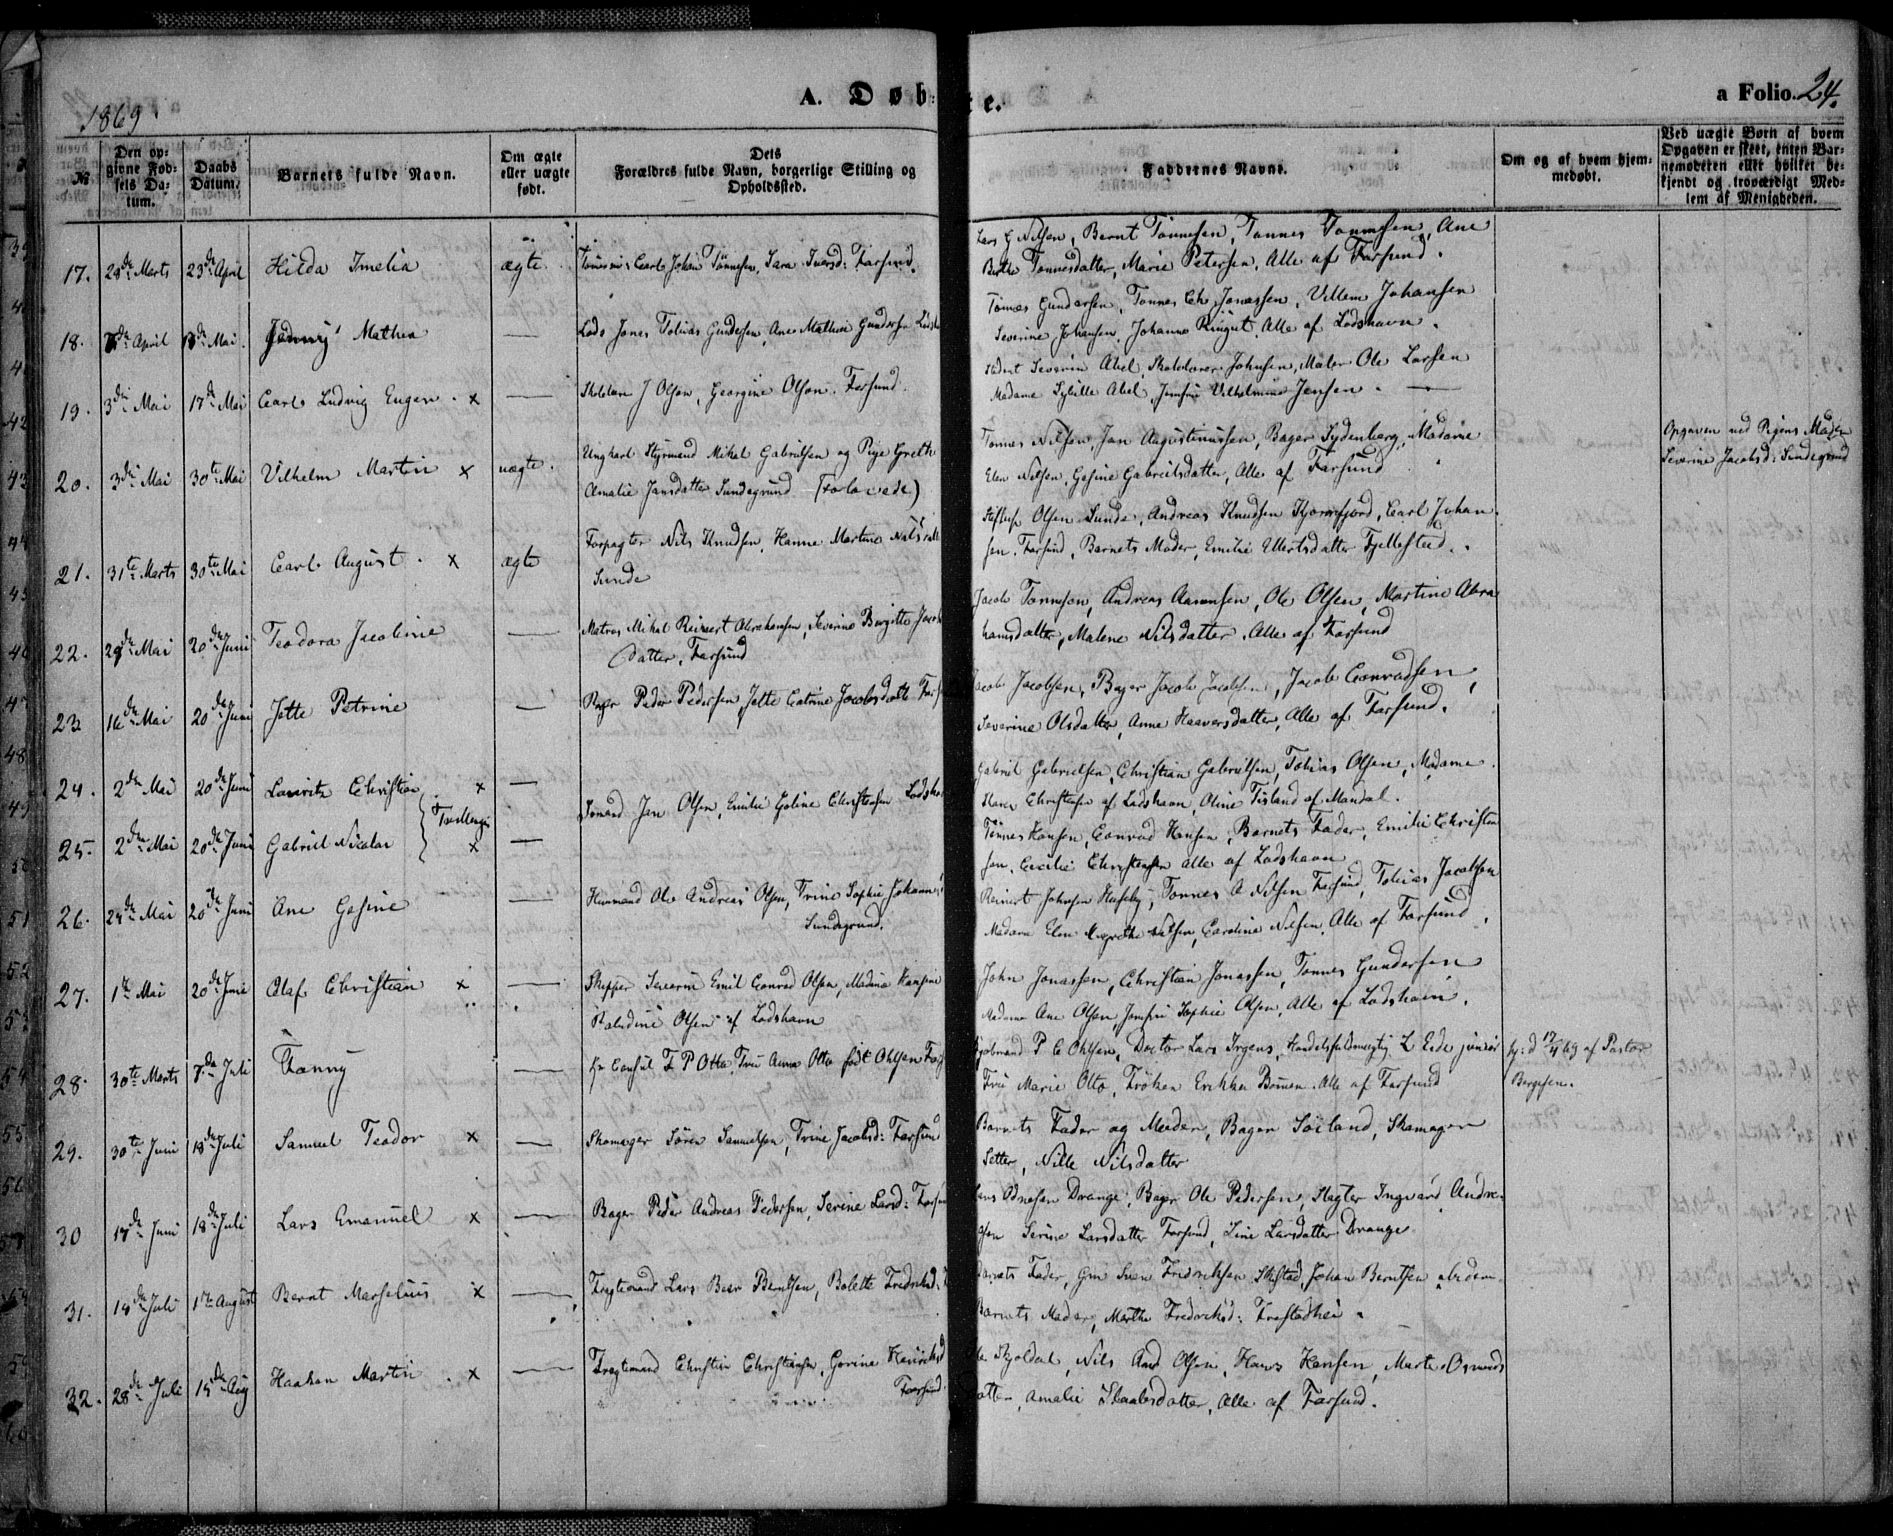 1869
A. Døbte.
a Folio. 24.
№
Den opgivne Fødsels Datum.
Daabs Datum.
Barnets fulde Navn.
Om ægte eller uægte født.
Dets Forældres fulde Navn, borgerlige Stilling og Opholdssted.
Faddernes Navne.
Om og af hvem hjemmedøbt.
Ved uægte Børn af hvem Opgaven er skeet, enten Barnemoderen eller hvilket bekjendt og troværdigt Medlem af Menigheden.
17. 28de Marts 23de April Hilda Imelia ægte Carl Johan Tønnesen, Sara Iversd: Farsund.
Lars G Nilsen, Bernt Tønnesen, Tønnes Tønnesen, Ane
Berthe Tønnesdatter, Marie Petersen, Alle af Farsund.
18. April Mai. Jenny Mathea — Lods Jonas Tobias Gundersen, Ane Mathea Gundersen
Tønnes Gundersen, Tønnes Ch Jonassen, Villem Johansen
Severine Johansen, Johanne Ringut, Alle af Lodshavn.
19. 3die Mai 17de Mai Carl Ludvig Eugen. x — J Olsen, Georgine Olsen. Farsund.
Severin Abel, Skolelærer Johnsen, Maler Ole Larsen
Madame Sybille Abel, Jomfru Vilhelmine Jensen. —
20. 3die Mai 30te Mai Vilhelm Martin x uægte. Ungkarl Styrmand Mikal Gabrielsen og Pige Grethe
Amalie Jansdatter Sundegrund (Forlovede)
Tønnes Nilsen, Jan Augustinussen, Bager Sydenberg, Madame
Elen Nilsen, Gesine Gabrielsdatter, Alle af Farsund
Opgaven ved Pigens Moder
Severine Jacobsd: Sundegrund
21. 31te Marts 30te Mai Carl August. x ægte Forpagter Nils Knudsen, Hanne Martine
Sunde
Olsen Sunde, Andreas Knudsen Kjørrefjord, Carl Johan
sen. Farsund, Barnets Moder, Emilie Ellertsdatter Fjellestad.
22. 29de Mai 20de Juni Teodora Jacobine — Matros Mikal Reinert Abrahamsen, Severine Birgitte Jacobs
datter, Farsund
Jacob Tønnesen, Andreas Aanensen, Ole Olsen, Martine Abra
hamsdatter, Malene Nilsdatter. Alle af Farsund
23. 16de Mai 20de Juni Jette Petrine — Bager Peder Pedersen, Jette Catrine Jacobsdatter
Jacob Jacobsen, Bager Jacob Jacobsen, Jacob Conradsen,
Severine Olsdatter, Anne Haaversdatter, Alle af Farsund.
24. 2den Mai 20de Juni Lauritz Christian x —
Tvillinger
Jan Olsen, Emilie Goline Christensen
Gabriel Gabrielsen, Christian Gabrielsen, Tobias Olsen, Madame
Christensen af Lodshavn, Oline Tisland af Mandal.
25. 2den Mai 20de Juni Gabriel Nicolai x —
Tønnes Hansen, Conrad Hansen, Barnets Fader, Emilie Christen
sen, Cecilie Christensen alle af Lodshavn
26. 24de Mai 20de Juni Ane Gesine — Ole Andreas Olsen, Trine Sophie
Sundegrund.
Reinert Johnsen Huseby, Tønnes A Nilsen Farsund, Tobias Jacobsen
Madame Elen Nilsen, Caroline Nilsen, Alle af Farsund.
27. 1te Mai 20de Juni Olaf Christian x — Skipper Severin Emil Conrad Olsen, Madame Hansine
Olsen af Lodshavn
John Jonassen, Christian Jonassen, Tønnes Gundersen
Madame Ane Olsen, Jomfru Sophie Olsen, Alle af Lodshavn.
28. 30te Marts 7de Juli Fanny — Hr Consul P Otto Fru Anna Otto født Ohlsen
P C Ohlsen, Doctor Lars Irgens, Handelsfuldmægtig L Eide junior
Fru Marie Otto, Frøken Erikka Bomen. Alle af Farsund
hj: d 17/4 69 af Pastor
29. 30te Juni 18de Juli Samuel Teodor x — Skomager Søren Samuelsen, Trine Jacobsd: Farsund
Barnets Fader og Moder, Bager Soiland, Skomager
Setter, Nille Nilsdatter
30 17de Juni 18de Juli Lars Emanuel x — Bager Peder Andreas Pedersen, Serine Larsd:
Drange, Bager Ole Pedersen, Slagter Ingvard Andre-
asen Serine Larsdatter Farsund, Line Larsdatter Drange
31. 14de Juli 1te August Bernt Marselius x — Fragtemand Lars Berntsen, Bolette Fredriksd:
Barnets Fader, Gm Sven Fredriksen, Johan Berntsen
Barnets Moder, Marthe Fredriksd:
32. 28de Juli 15de Aug Haakon Martin. x — Fragtemand Christian Christiansen, Gorine
Farsund.
Nils And Olsen, Hans Hansen, Marte Osmunds
datter, Amalie datter, Alle af Farsund.